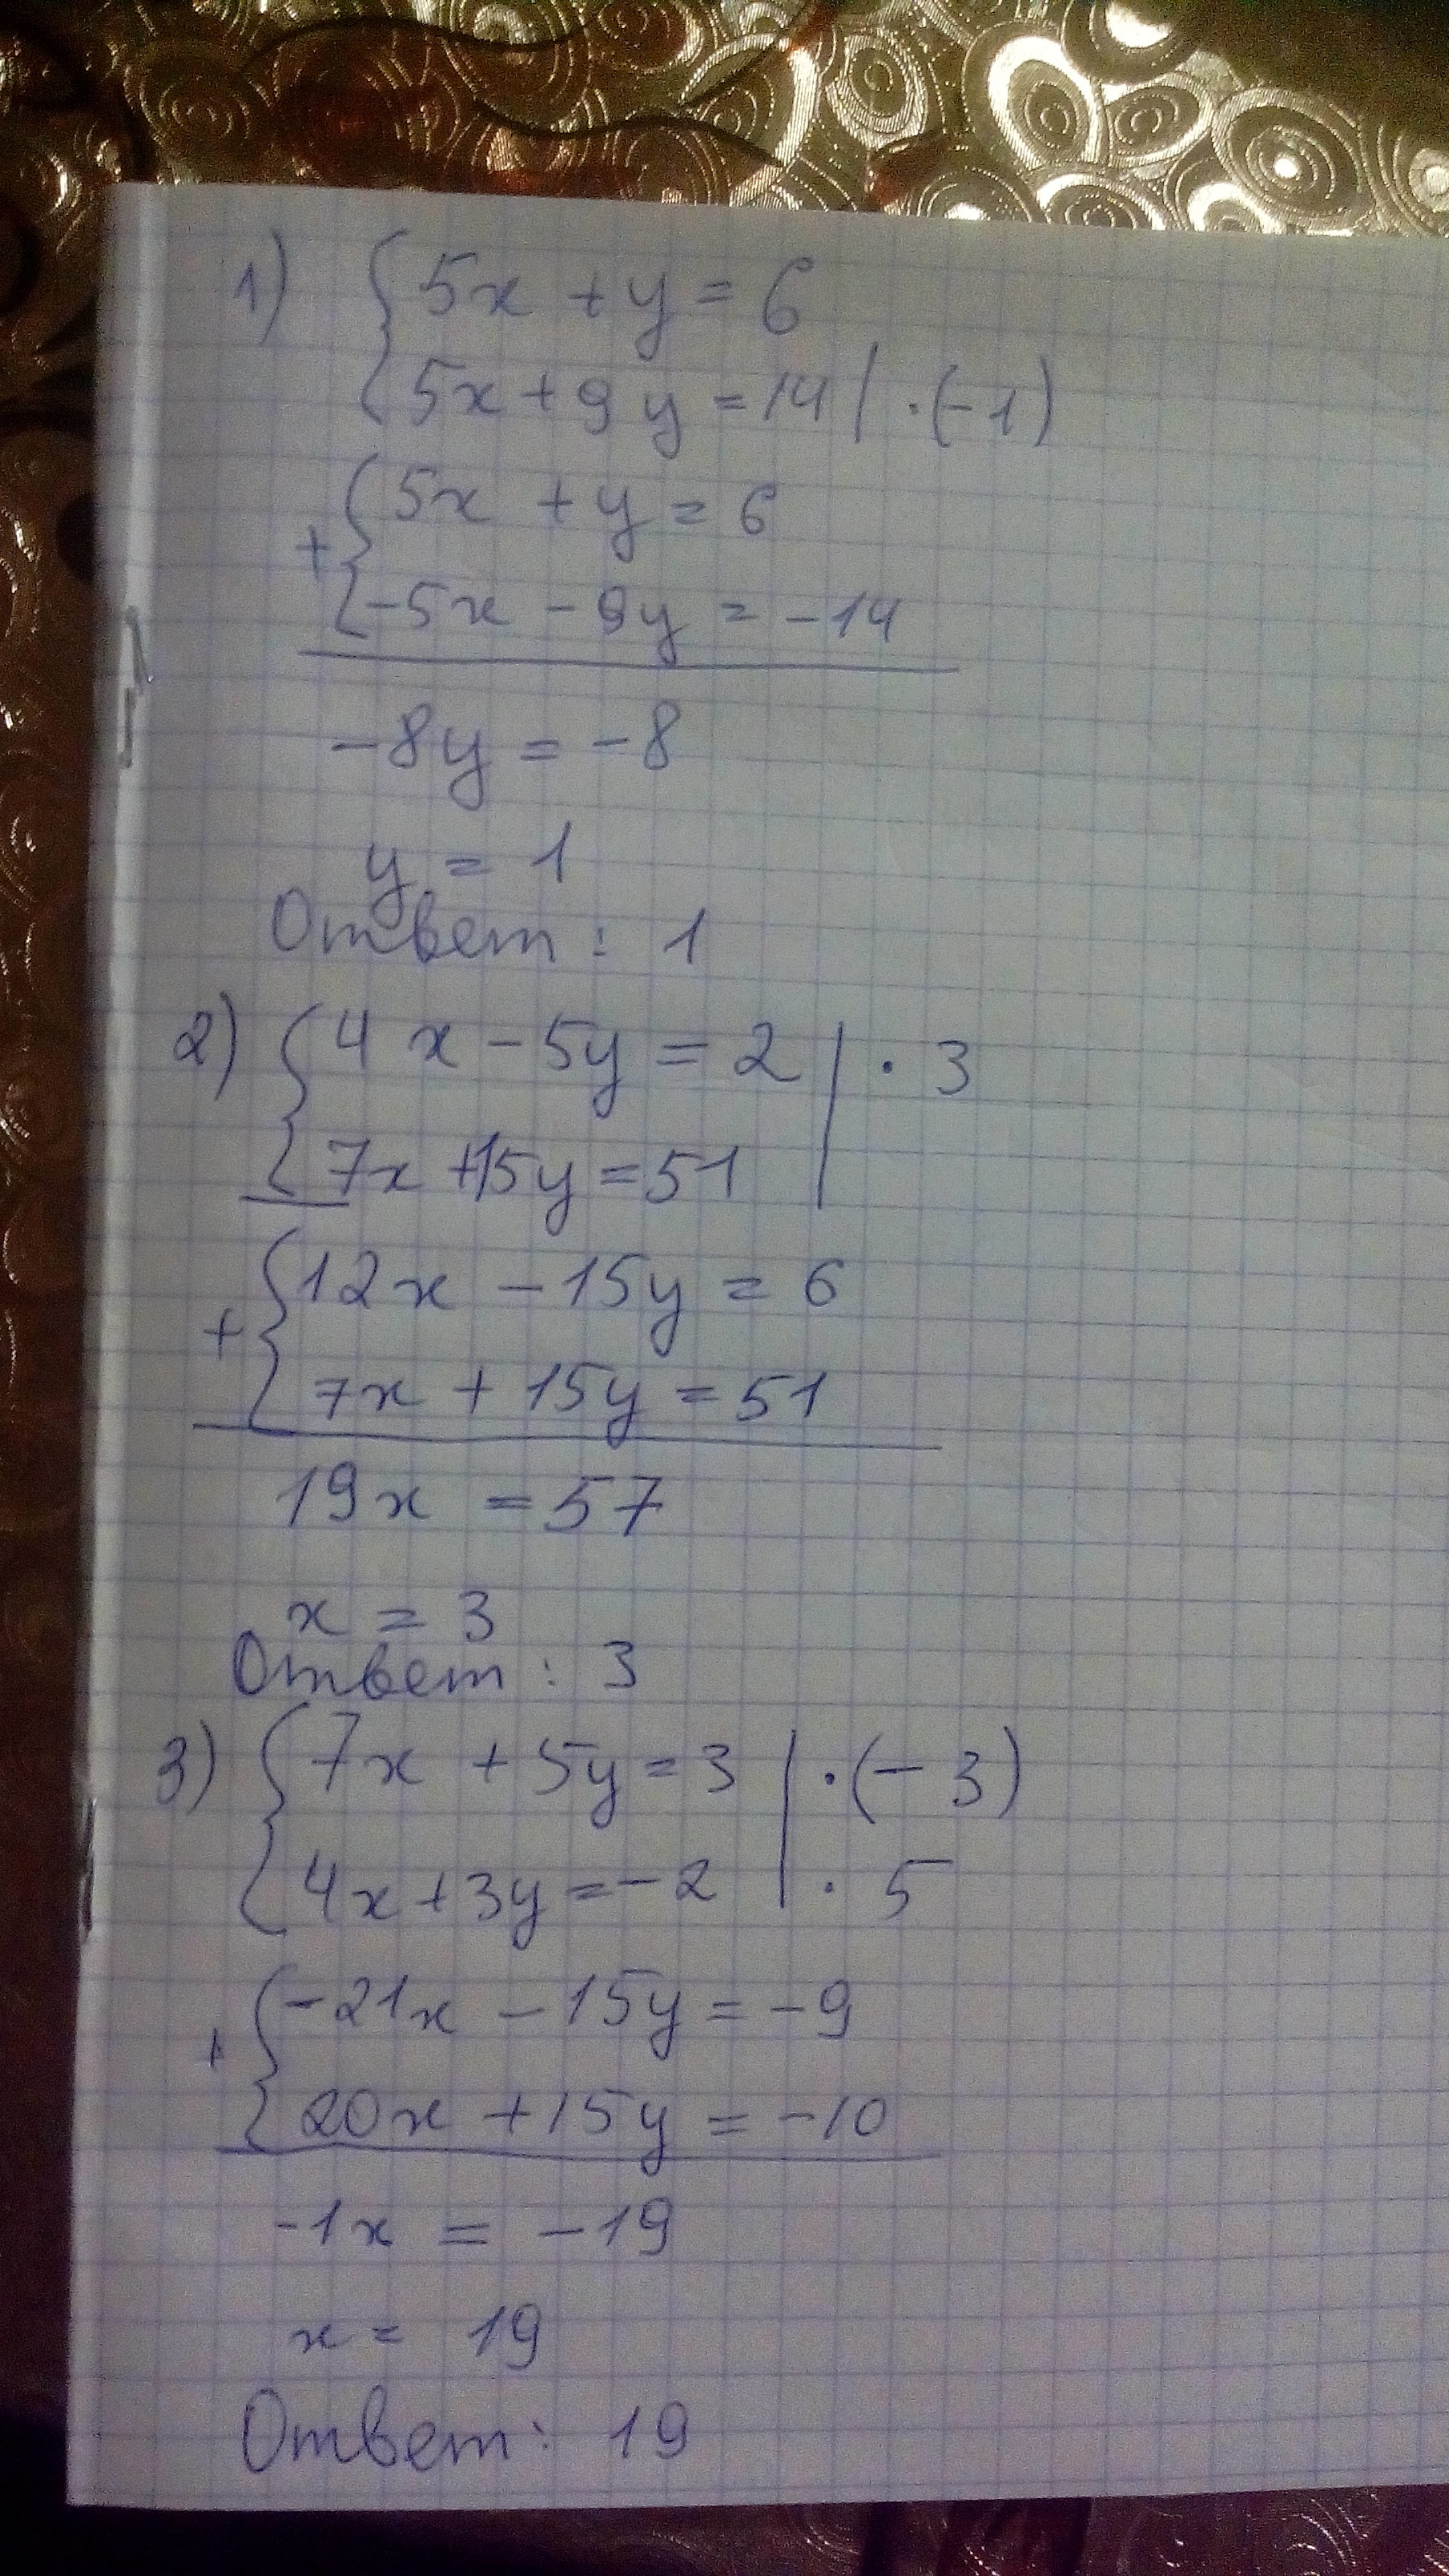 1) { 5x + y = 6
5x + 9y = 14 | · (-1)
+ { 5x + y = 6
-5x - 9y = -14
-8y = -8
y = 1
Ответ: 1
2) { 4x - 5y = 2 | · 3
7x + 15y = 51
+ { 12x - 15y = 6
7x + 15y = 51
19x = 57
x = 3
Ответ: 3
3) { 7x + 5y = 3 | · (-3)
4x + 3y = -2 | · 5
+ { -21x - 15y = -9
20x + 15y = -10
-1x = -19
x = 19
Ответ: 19